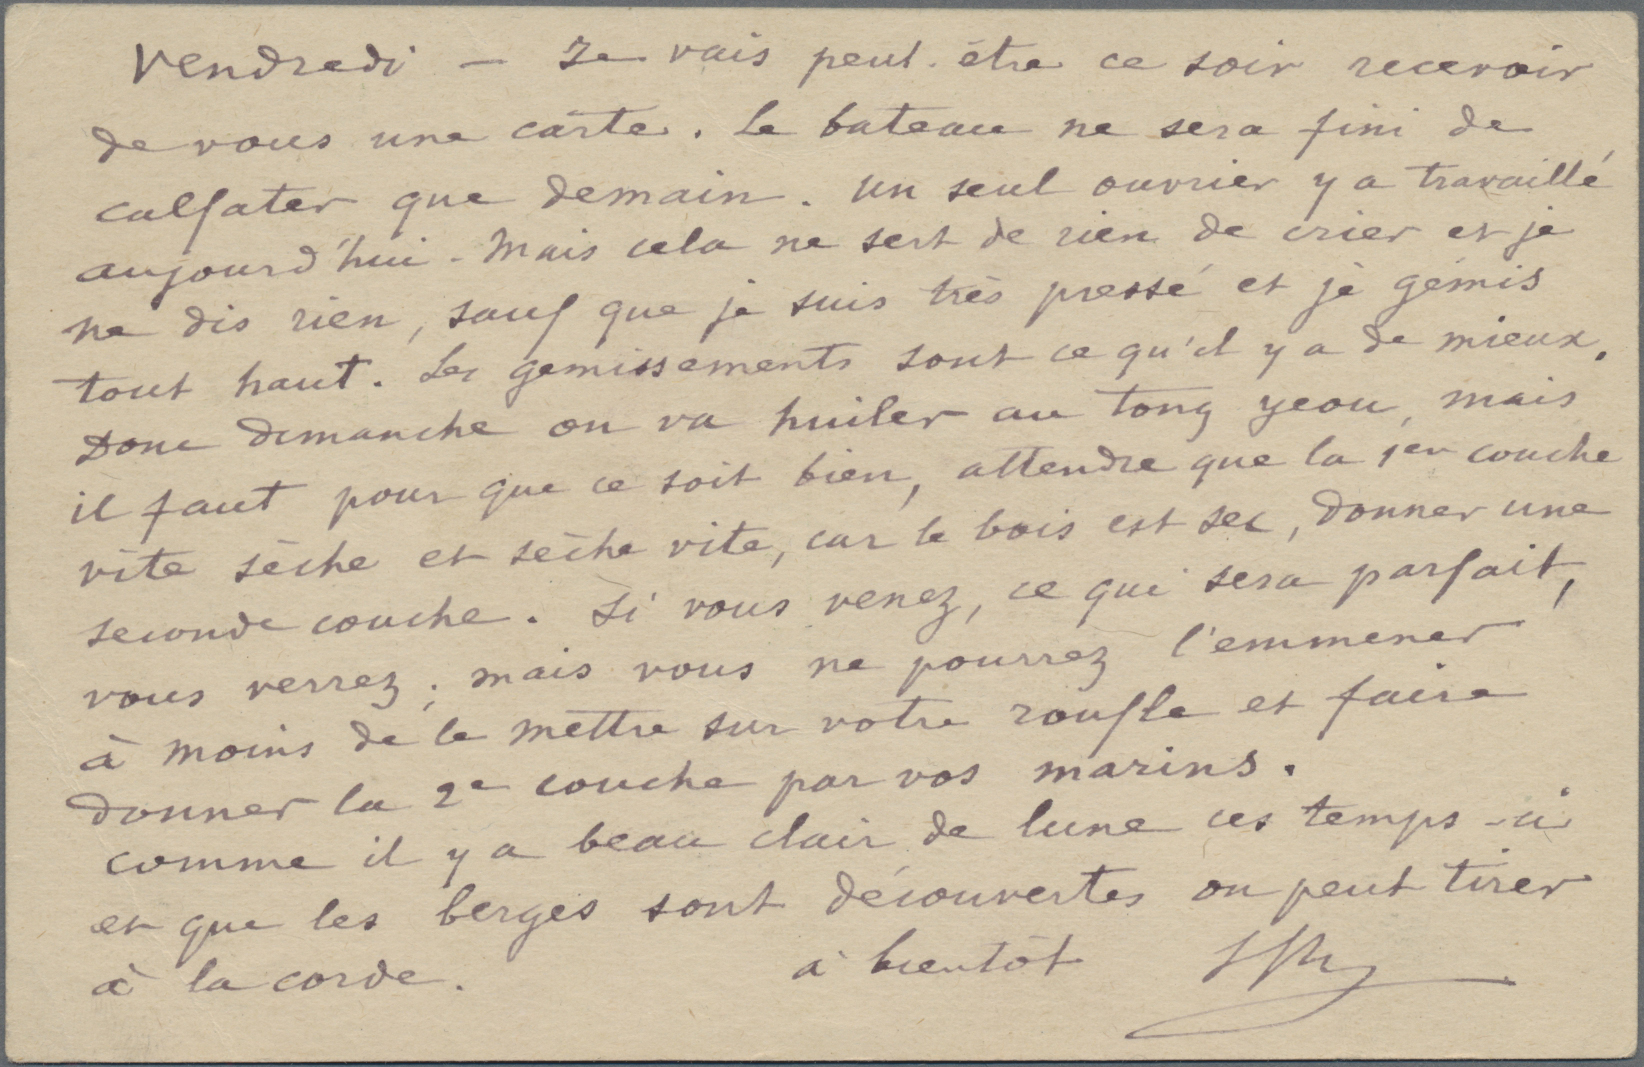 Vendredi — Je vais peut-être ce soir recevoir
de vous une carte. Le bateau ne sera fini de
calfater que demain. Un seul ouvrier y a travaillé
aujourd'hui - Mais cela ne sert de rien de crier et je
ne dis rien, sauf que je suis très pressé et je gémis
tout haut. Les gemissements sont ce qu'il y a de mieux.
Donc dimanche on va huiler au Tong yeou, mais
il faut pour que ce soit bien, attendre que la 1er couche
vite sèche et sèche vite, car le bois est sec, donner une
seconde couche. Si vous venez, ce qui sera parfait,
vous verrez, mais vous ne pourrez l'emmener
à moins de le mettre sur votre roufle et faire
donner la 2e couche par vos marins.
Comme il y a beau clair de lune ces temps-ci
et que les berges sont découvertes on peut tirer
à la corde. à bientôt